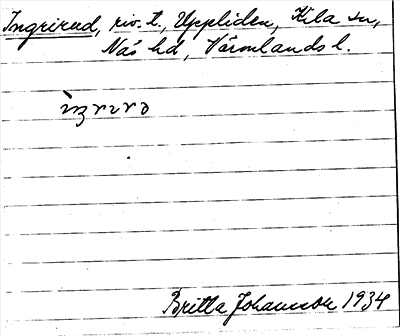 Ingrirud, riv. t., Uppliden, Kila sn,
Näs hd, Värmlands l.
Britta Johansson 1934